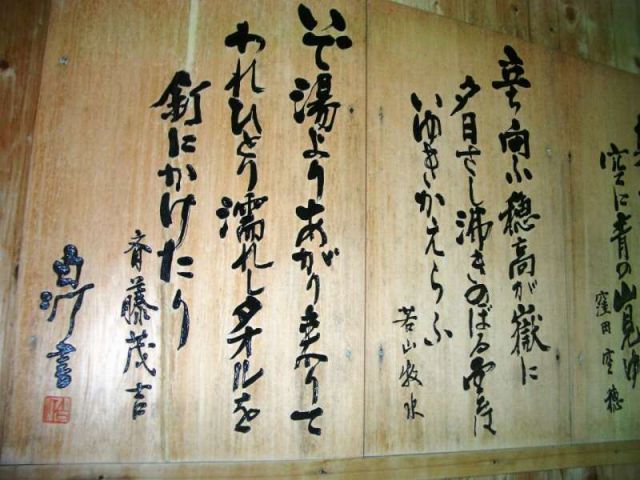 空に青の山見ゆ
窪田空穂
立ち向ふ穂高が嶽に
夕日さし沸きのぼる雲は
いゆきかえらふ
若山牧水
いで湯よりあがり来りて
われひとり濡れしタオルを
釘にかけたり
斉藤茂吉
書